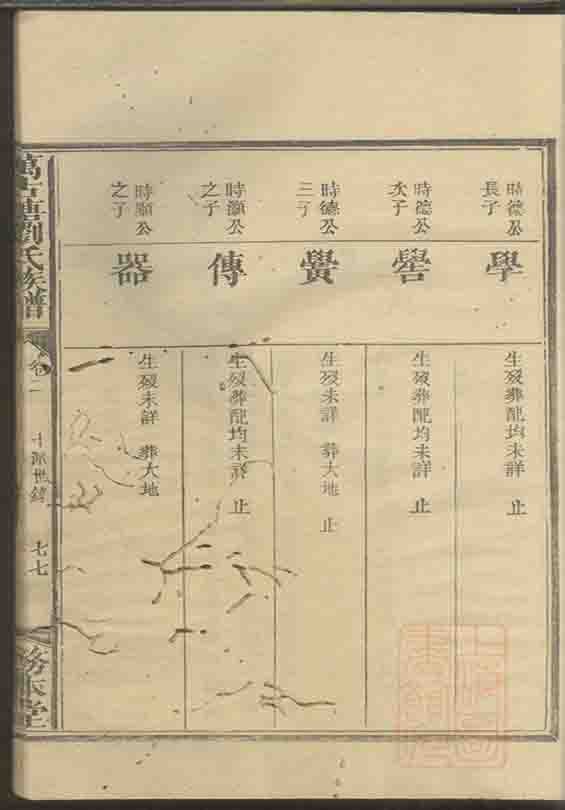 時德公
長子
學
生歿葬配均未詳 止
時德公
次子
嚳
生歿葬配均未詳 止
時德公
三子
黌
生歿未詳 葬大地 止
時灝公
之子
傳
生歿葬配均未詳 止
時顯公
之子
器
生歿未詳 葬大地
劉氏族譜
卷二
十派世錄
七七
務本堂